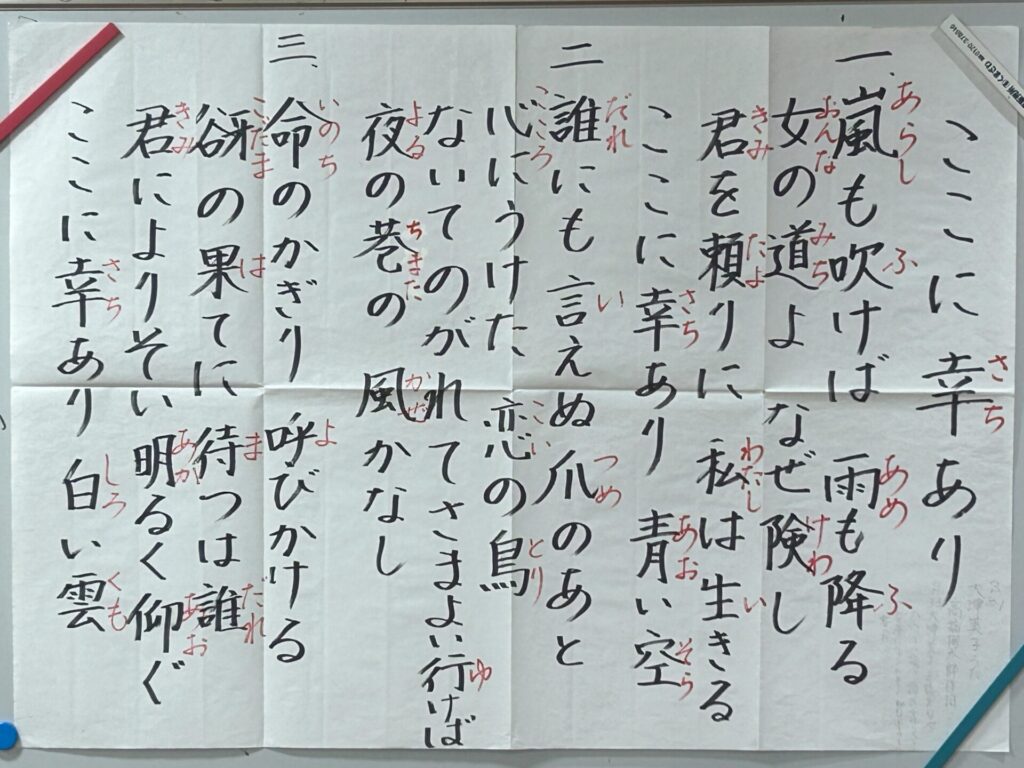 ここに幸あり
一、嵐も吹けば 雨も降る
女の道よ なぜ険し
君を頼りに 私は生きる
ここに幸あり 青い空
二 誰にも言えぬ爪のあと
心にうけた恋の鳥
ないてのがれてさまよい行けば
夜の巷の 風かなし
三、命のかぎり 呼びかける
谺の果てに 待つは誰
君によりそい明るく仰ぐ
ここに幸あり 白い雲